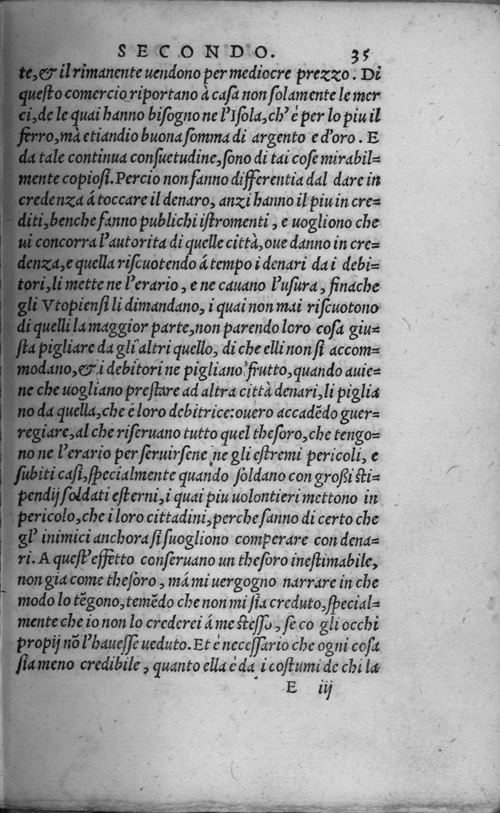 SECONDO. 35
te, & il rimanente uendono per mediocre prezzo. Di
queſto comercio riportano à caſa non ſolamente le mer
ci, de le quai hanno biſogno ne l'Iſola, ch' é per lo piu il
ferro, mà etiandio buona ſomma di argento e d'oro. E
da tale continua conſuetudine, ſono di tai coſe mirabil=
mente copioſi. Percio non fanno differentia dal dare in
credenza á toccare il denaro, anzi hanno il piu in cre=
diti, benche fanno publichi iſtromenti, e uogliono che
ui concorra l'autorita di quelle città, oue danno in cre=
denza, e quella riſcuotendo á tempo i denari da i debi=
tori, li mette ne l'erario, e ne cauano l'uſura, finache
gli Vtopienſi li dimandano, i quai non mai riſcuotono
di quelli la maggior parte, non parendo loro coſa giu=
ſta pigliare da gli altri quello, di che elli non ſi accom=
modano, & i debitori ne pigliano frutto, quando auie=
ne che uogliano preſtare ad altra città denari, li piglia
no da quella, che é loro debitrice: ouero accadẽdo guer=
regiare, al che riſeruano tutto quel theſoro, che tengo=
no ne l'erario per ſeruirſene ne gli eſtremi pericoli, e
ſubiti caſi, ſpecialmente quando ſoldano con groſſi ſti=
pendij ſoldati eſterni, i quai piu uolontieri mettono in
pericolo, che i loro cittadini, perche ſanno di certo che
gl' inimici anchora ſi ſuogliono comperare con dena=
ri. A queſt' effetto conſeruano un theſoro ineſtimabile,
non gia come theſoro, má mi uergogno narrare in che
modo lo tẽgono, temẽdo che non mi ſia creduto, ſpecial=
mente che io non lo crederei á me ſteſſo, ſe co gli occhi
propij nõ l'haueſſe ueduto. Et é neceſſario che ogni coſa
ſia meno credibile, quanto ella é da i coſtumi de chi la
E iij